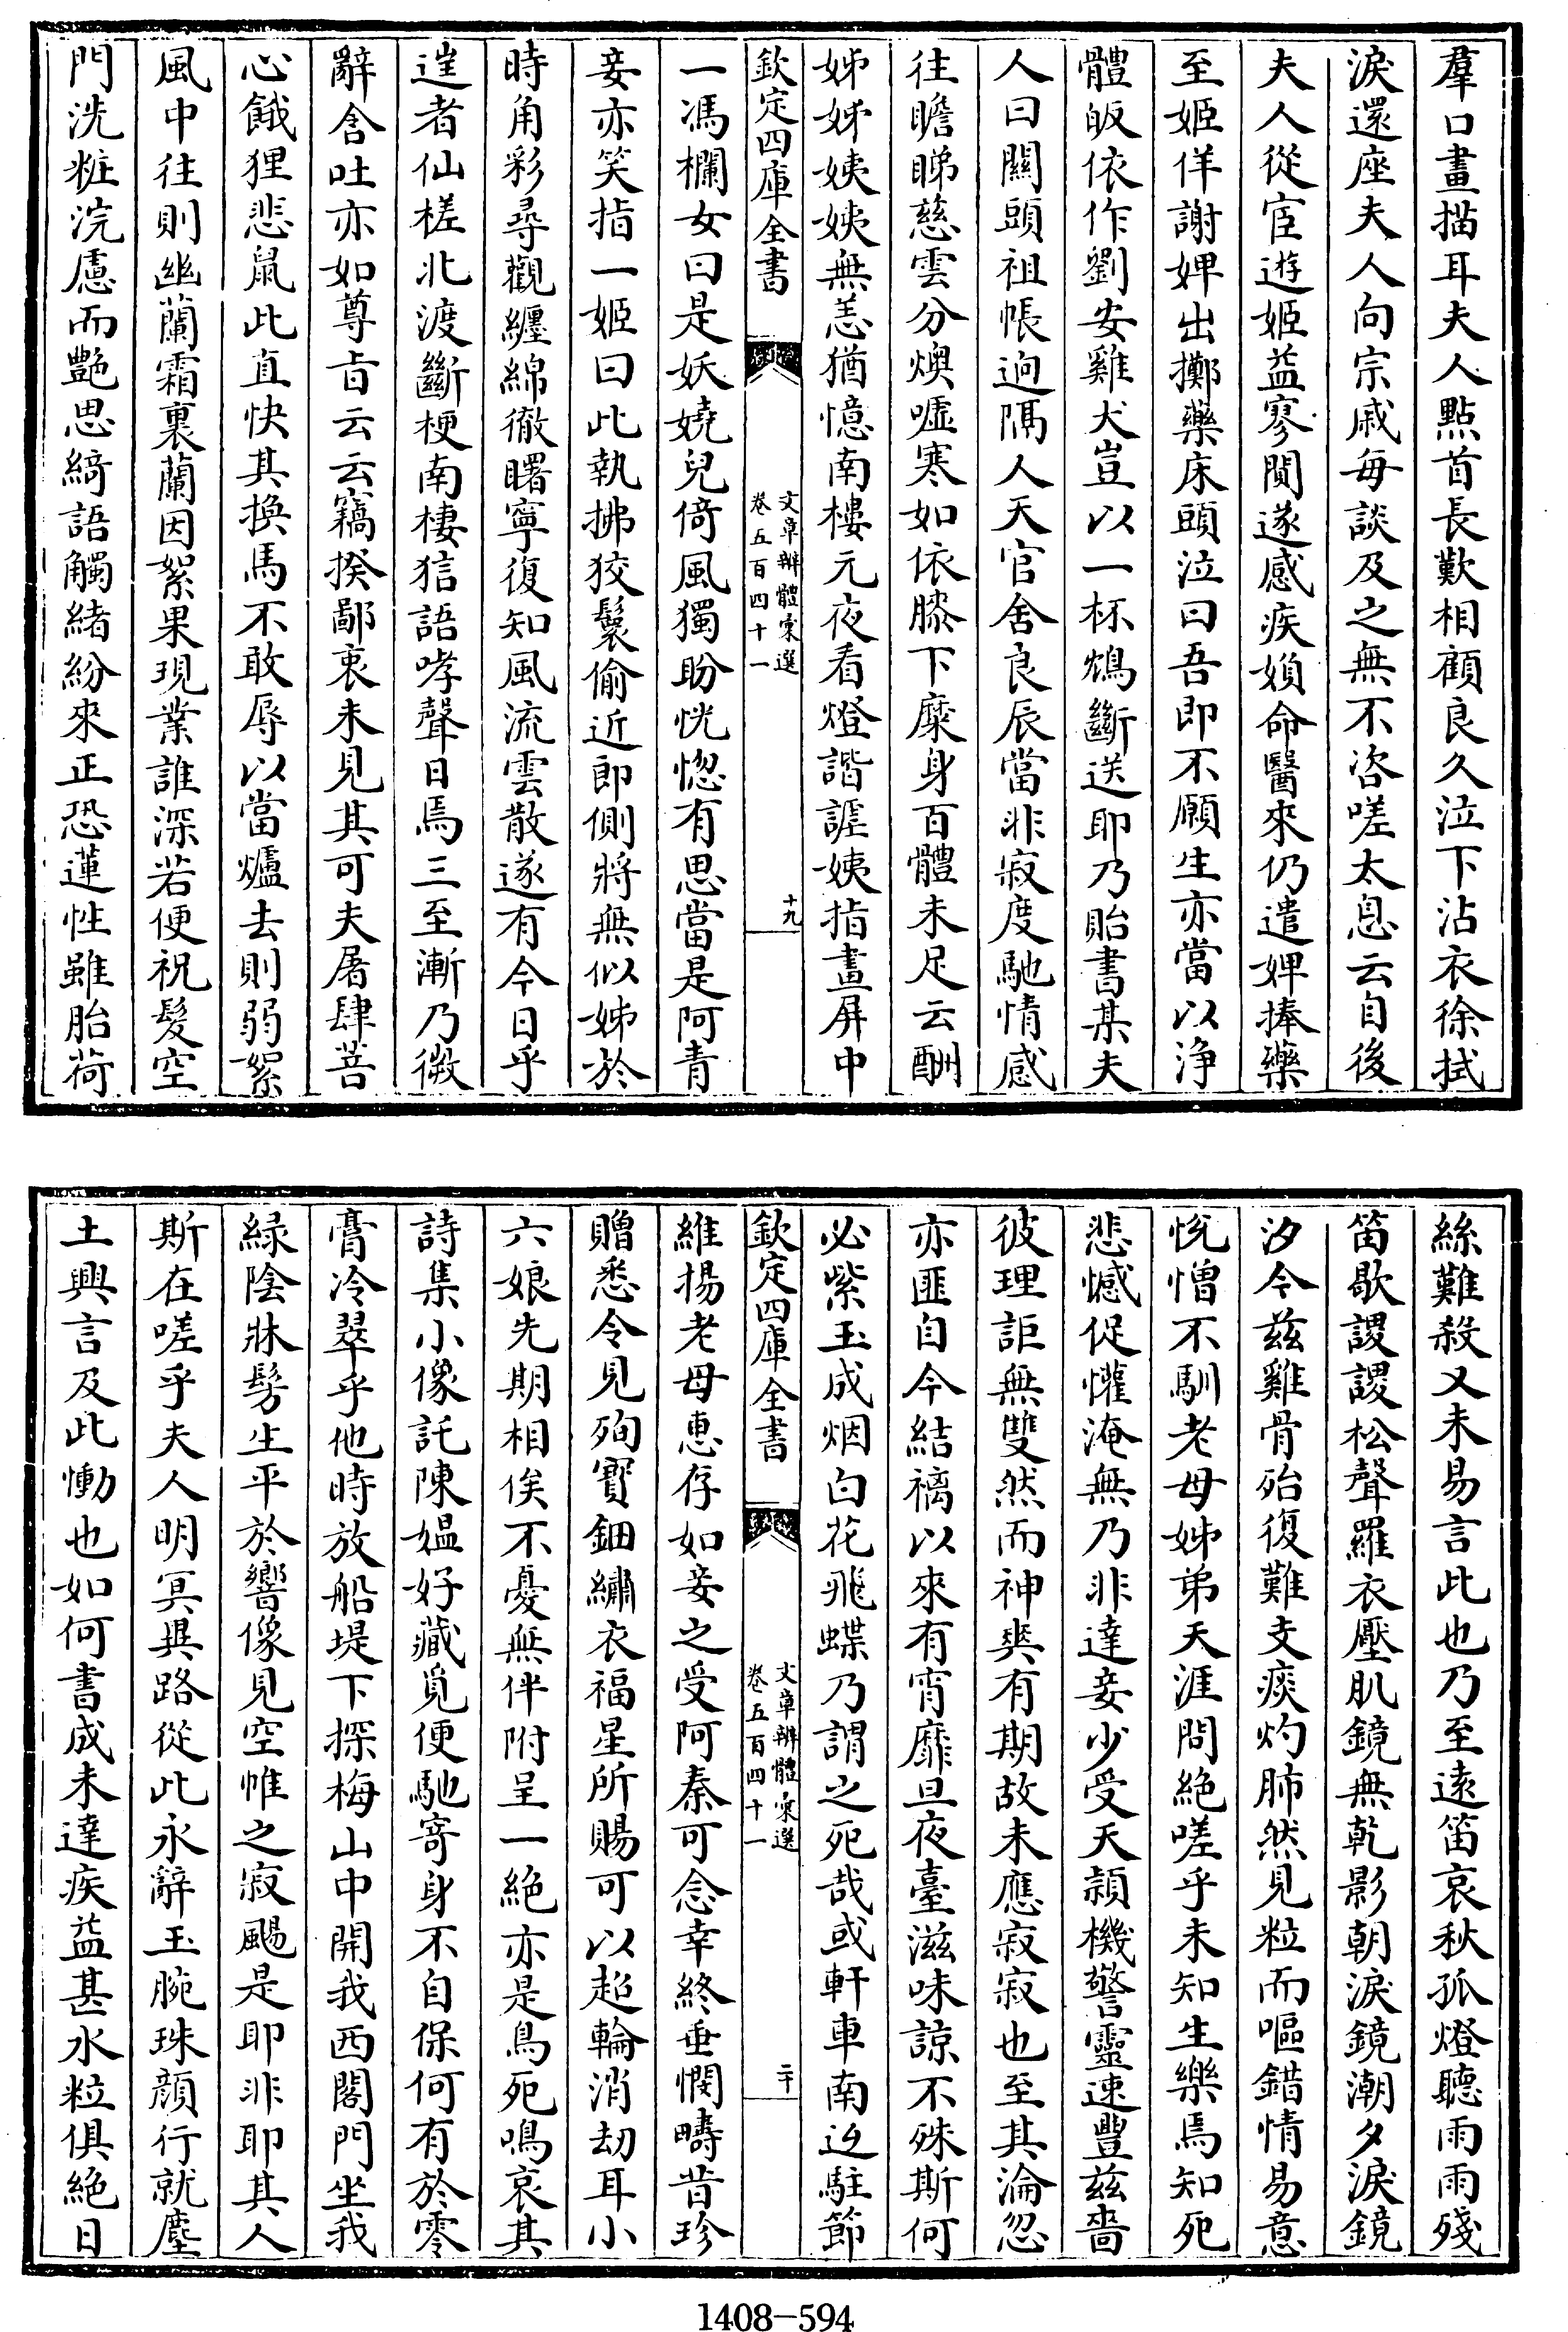 羣口畫描耳夫人點首長歎相顧良久泣下沾衣徐拭
淚還座夫人向宗戚每談及之無不咨嗟太息云自後
夫人從宦遊姬益寥閴遂感疾嬪命醫來仍遣婢捧藥
至姬佯謝婢出擲藥床頭泣曰吾即不願生亦當以淨
體皈依作劉安雞犬豈以一杯鴆斷送耶乃貽書某夫
人曰關頭祖帳逈隔人天官舍良辰當非寂度馳情感
往瞻睇慈雲分燠噓寒如依膝下糜身百體未足云酬
姊姊姨姨無恙猶憶南樓元夜看燈諧謔姨指畫屏中
欽定四庫全書
文章辨體彙選
卷五百四十一
十九
一馮欄女曰是妖嬈兒倚風獨盼恍惚有思當是阿青
妾亦笑指一姬曰此執拂狡鬟偷近郎側將無似姊於
時角彩尋觀纏綿徹曙寧復知風流雲散遂有今日乎
逞者仙槎北渡斷梗南棲狺語哮聲日焉三至漸乃微
辭含吐亦如尊旨云云竊揆鄙衷未見其可夫屠肆菩
心餓狸悲鼠此直快其換馬不敢辱以當爐去則弱絮
風中往則幽蘭霜裏蘭因絮果現業誰深若便祝髮空
門洗粧浣慮而艷思綺語觸緒紛來正恐蓮性雖胎荷
絲難殺又未易言此也乃至遠笛哀秋孤燈聽雨雨殘
笛歇謖謖松聲羅衣壓肌鏡無乾影朝淚鏡潮夕淚鏡
汐今茲雞骨殆復難支痰灼肺然見粒而嘔錯情易意
悅憎不馴老母姊弟天涯問絕嗟乎未知生樂焉知死
悲憾促懽淹無乃非達妾少受天頴機警靈速豐茲嗇
彼理詎無雙然而神爽有期故未應寂寂也至其淪忽
亦匪自今結褵以來有宵靡旦夜臺滋味諒不殊斯何
必紫玉成烟白花飛蝶乃謂之死哉或軒車南返駐節
欽定四庫全書
文章辨體彙選
卷五百四十一
二十
維揚老母惠存如妾之受阿秦可念幸終垂憫疇昔珍
贈悉令見殉寳鈿繡衣福星所賜可以超輪消劫耳小
六娘先期相俟不憂無伴附呈一絕亦是鳥死鳴哀其
詩集小像託陳媼好藏覓便馳寄身不自保何有於零
膏冷翠乎他時放船堤下探梅山中開我西閣門坐我
緑陰牀髣生平於響像見空帷之寂颺是耶非耶其人
斯在嗟乎夫人明冥異路從此永辭玉腕珠顏行就塵
土興言及此慟也如何書成未達疾益甚水粒俱絕日
1408-594